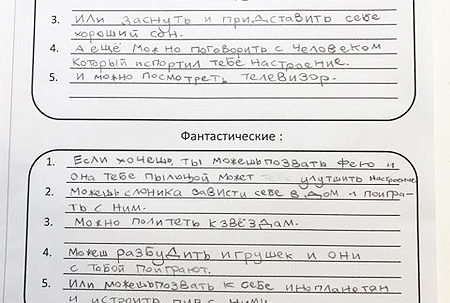 3. Или заснуть и придставить себе
хороший сон.
4. А ещё можно поговорить с человеком
который испортил тебе настроение.
5. и можно посмотреть телевизор.
Фантастические :
1. Если хочешь, ты можешь позвать фею и
она тебе пыльцой может улутшить настроение
2. Можешь слоника зависти себе в дом и поигра-
ть с ним.
3. Можно полететь к звёздам.
4. Можеш разбудить игрушек и они
с тобой поиграют.
5. Или можешь позвать к себе инопланетан
и устроить пир с ними.